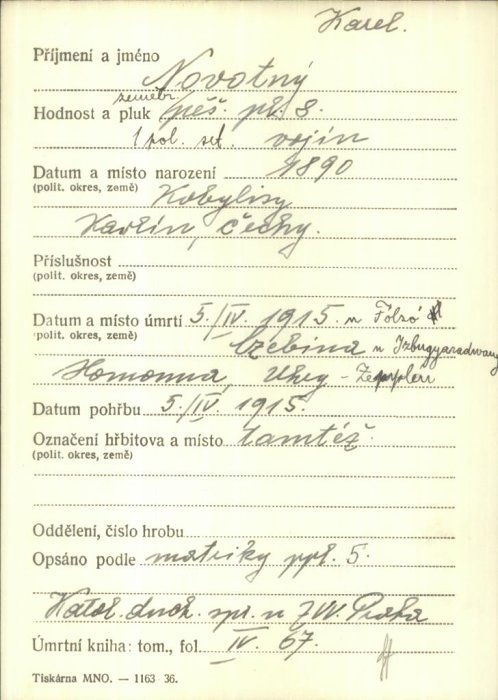 Karel.
Příjmení a jméno Novotný
zeměbr.
Hodnost a pluk pěš. pl. 8.
1 pol. set. vojín
Datum a místo narození 1890
(polit. okres, země) Kobylisy
Karlín, Čechy.
Příslušnost
(polit. okres, země)
Datum a místo úmrtí 5./IV. 1915. u Fölsó
(polit. okres, země) Czebina u Izbugyaradvany
Homonna, Uher - Zemplén
Datum pohřbu 5./IV. 1915.
Označení hřbitova a místo tamtéž.
(polit. okres, země)
Oddělení, číslo hrobu
Opsáno podle matriky ppl. 5.
Katol. duch. spr. u ZVV. Praha
Úmrtní kniha: tom., fol. IV. 67.
Tiskárna MNO. — 1163 36.